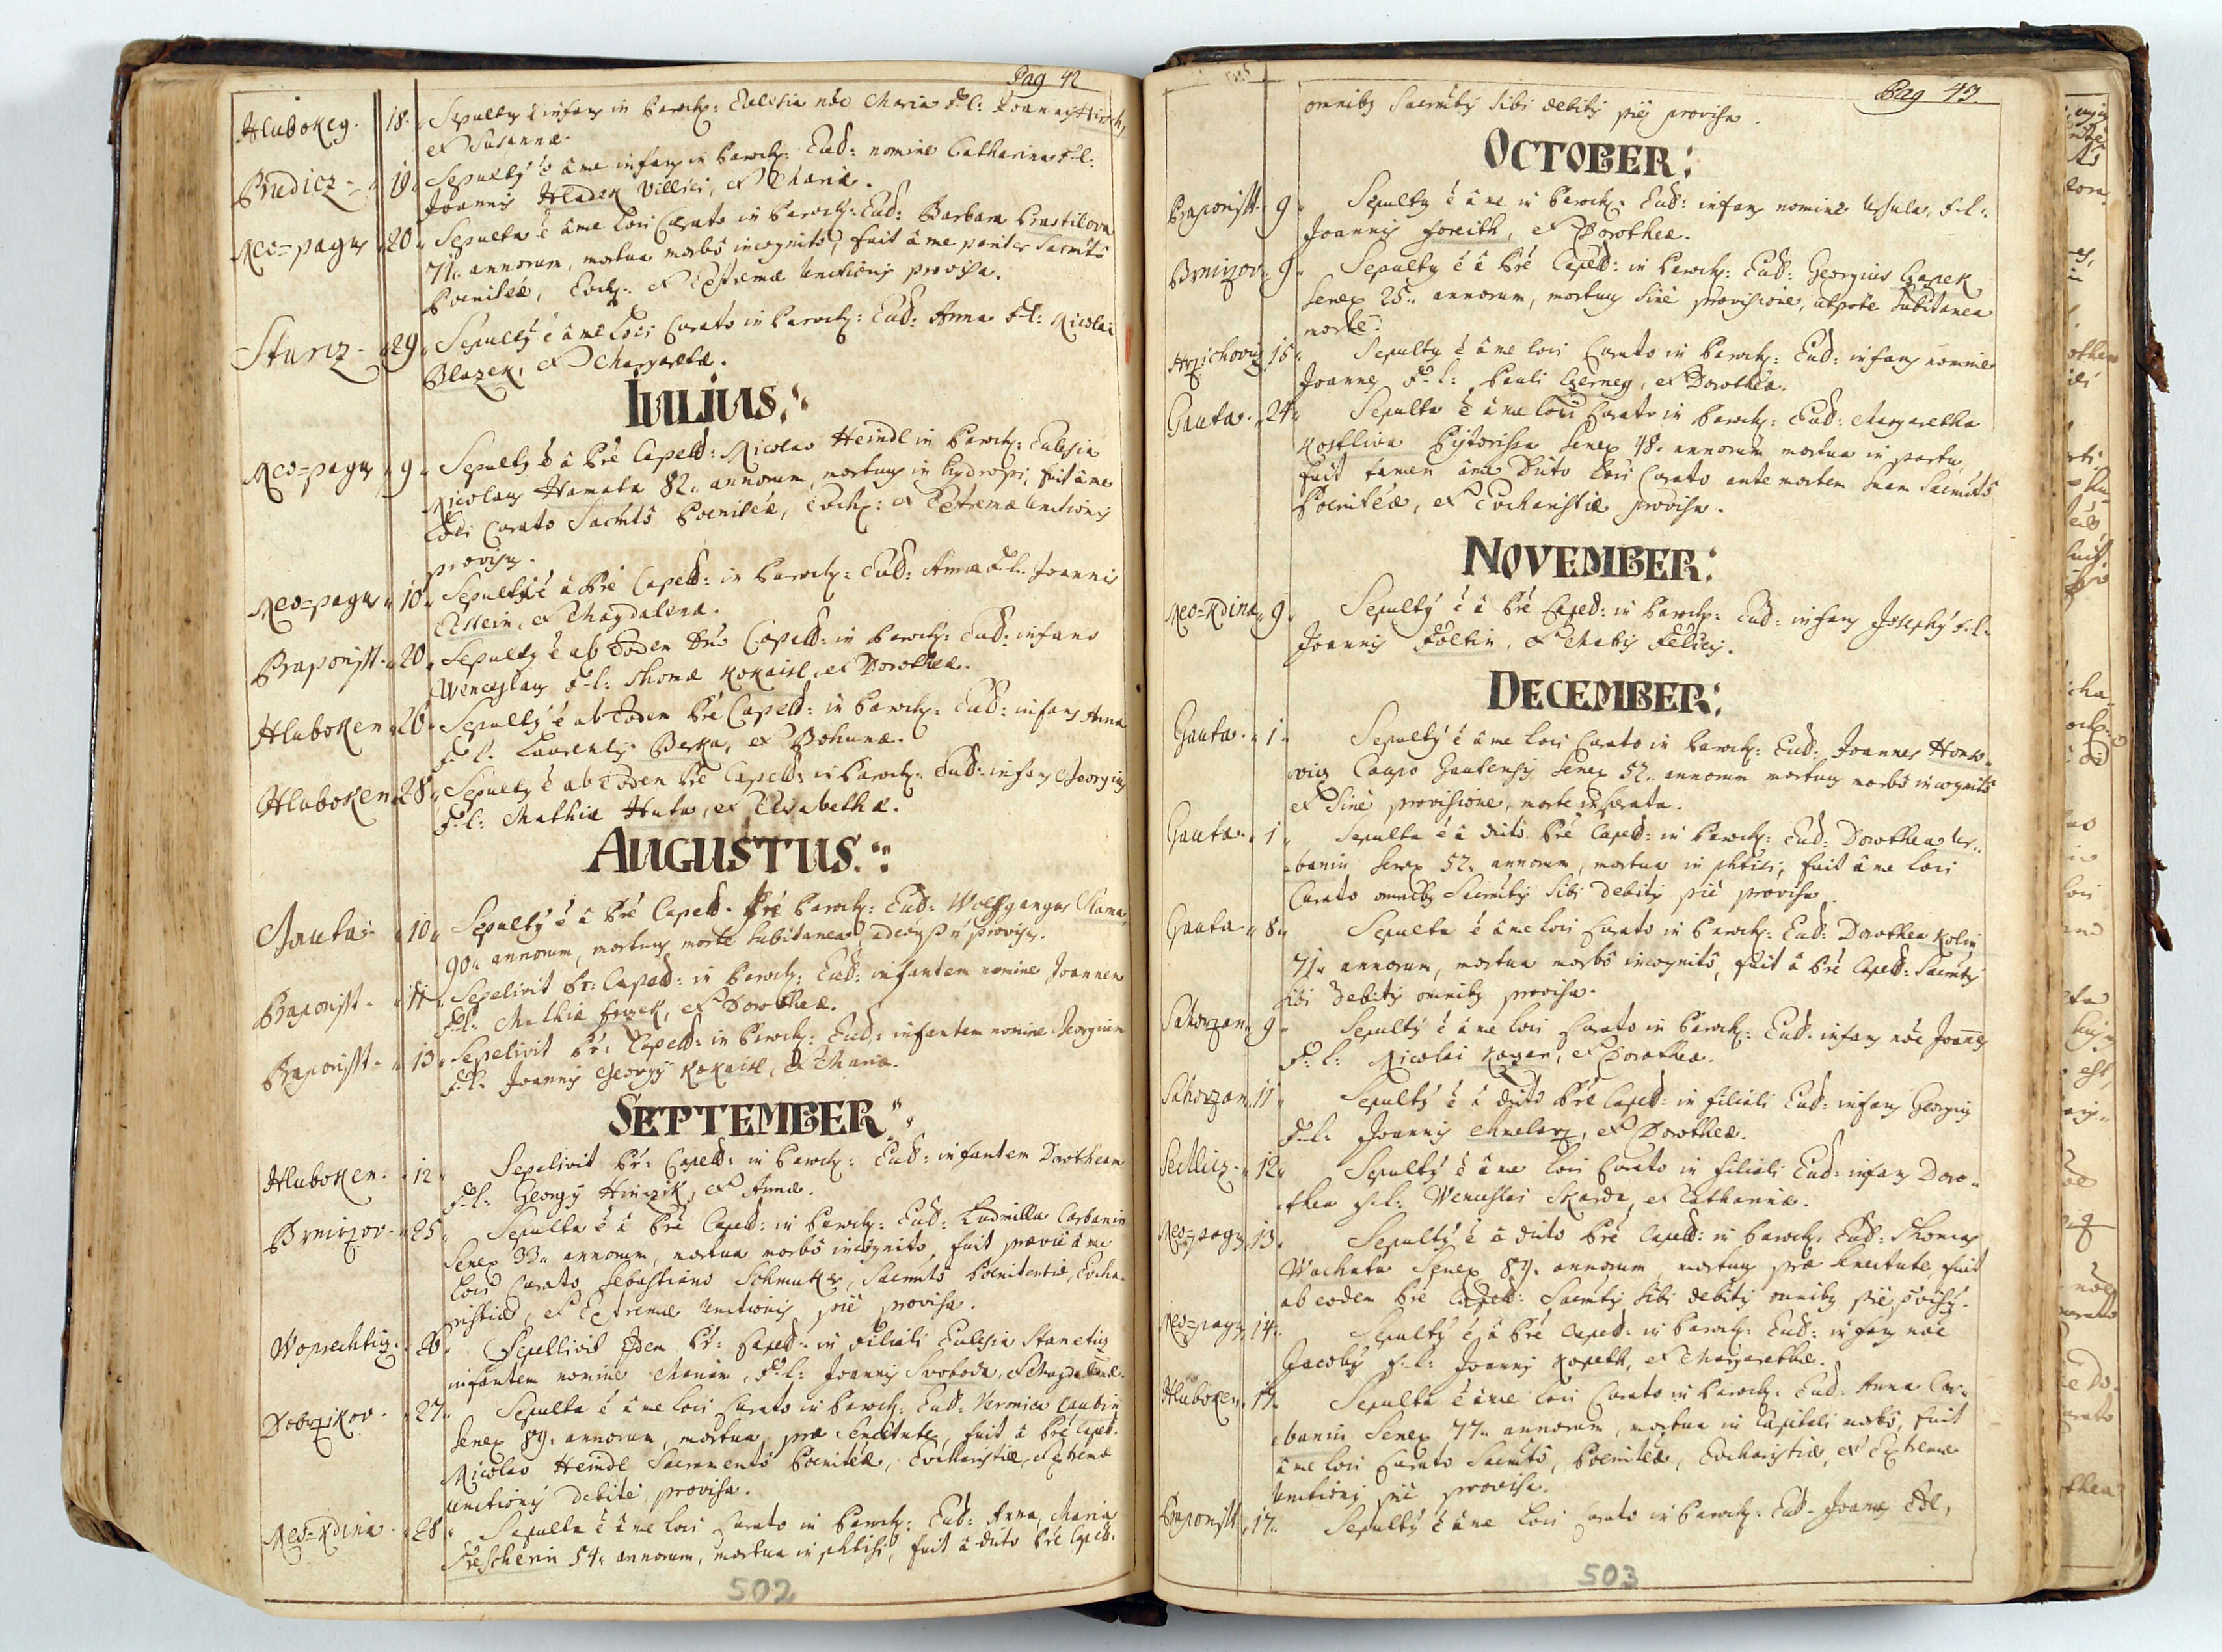 Pag 42
Hlubokey. 18. Sepultus ē infans in Paroch: Ecclesia nōe Maria F: l: Joannis Hirsch,
et Susannæ.
Prudicz 19. Sepultus ē â me infans in Paroch: Ead: nomine Catharina F: l:
Joannis Hladek Villici, et Mariæ.
Neo=pagus 20. Sepulta ē â me Loci Curato in Paroch: Ead: Barbara
71. annorum, mortua morbô incognitô, fuit â me pariter Sacrātô
Poenitēæ, Euch: et Extremæ Unctionis provisa.
29. Sepultus ē â me Loci Curato in Paroch: Ead: Anna F: l: Nicolai
Blazek, et Margaretæ.
IULIUS:
Neo=pagus 9. Sepultus ē â Prē Capell: Nicolao Heindl in Paroch: Ecclesia
Nicolaus Hamata 82. annorum, mortuus in hydropsi, fuit â me
Loci Curato Sacrātô Poenitēæ, Euch: et Extremæ Unctionis
provisus.
Neo=pagus 10. Sepultus ē â Prē Capell: in Paroch: Ead: Anna F: l: Joannis
et Magdalenæ.
Braponist 20. Sepultus ē ab Eodem Dnō Capell: in Paroch: Ead: infans
Wenceslaus F: l: Thomæ Kokaisl, et Dorotheæ.
Hluboken 26. Sepultus ē ab Eodem Prē Capell: in Paroch: Ead: infans Anna
F: l: Laurentij Berka, et Bohunæ.
Hluboken 28. Sepultus ē ab Eodem Prē Capell: in Paroch: Ead: infans Georgius
F: l: Mathiæ Huta, et Elisabethæ.
AUGUSTUS:
Gauta 10. Sepultus ē â Prē Capell: Paroch: Ead: Wolfgangus
90. annorum, mortuus morte subitanea, provisus.
Braponist 11. Sepelivit Pr: Capell: in Paroch: Ead: infantem nomine Joannem
F: l: Mathiæ et Dorotheæ.
Braponist 13. Sepelivit Pr: Capell: in Paroch: Ead: infantem nomine Georgium
F: l: Joannis Georgij Kokaisl, et Mariæ.
SEPTEMBER:
Hluboken 12. Sepelivit Pr: Capell: in Paroch: Ead: infantem Dorotheam
F: l: Georgij Hinczik, et Annæ.
Brnirzov 25. Sepulta ē â Prē Capell: in Paroch: Ead: Ludmilla Corbanin
Senex 33. annorum, mortua morbô incognito, fuit prævie â me
Loci Curato Sebastiano Schmuker, Sacrātô Poenitentiæ, Eucha-
ristiæ, et Extremæ Unctionis piè provisa.
Woprechtiz 26. Sepellivit Idem Pr: Capell: in Filiali Ecclesia Stanetiz
infantem nomine Mariam, F: l: Joannis Svoboda, et Magdalenæ.
Dobrzikov 27. Sepulta ē â me Loci Curato in Paroch: Ead: Veronica Caubin
Senex 89. annorum, mortua præ Senectute, fuit â Prē Capell:
Nicolao Heindl Sacramentô Poenitēæ, Eucharistiæ, et Extremæ
Unctionis debitè provisa.
Neo=Kdina 28. Sepulta ē â me Loci Curato in Paroch: Ead: Anna Maria
Frescherin 54. annorum, mortua in phtisi, fuit â dicto Prē Capell:
502
Pag 43
omnibus Sacrātis sibi debitis piè provisa.
OCTOBER:
Braponist 9. Sepultus ē â me in Paroch: Ead: infans nomine Ursula, F: l:
Joannis Foreith, et Dorotheæ.
Brnirzov 9. Sepultus ē â Prē Capell: in Paroch: Ead: Georgius Czapek
Senex 25. annorum, mortuus sine provisione, utpote subitanea
morte.
15. Sepultus ē â me Loci Curato in Paroch: Ead: infans nomine
Joannes F: l: Pauli Czerney, et Dorotheæ.
Gauta 24. Sepulta ē â me Loci Curato in Paroch: Ead: Margaretha
Senex 48. annorum mortua in partu,
fuit tamen â me Dicto Loci Curato ante mortem suam Sacrātô
Poenitēæ, et Eucharistiæ provisa.
NOVEMBER:
Neo=Kdina 9. Sepultus ē â Prē Capell: in Paroch: Ead: infans Josephus F: l:
Joannis Foltin, et Matris Felicis.
DECEMBER:
Gauta 1. Sepultus ē â me Loci Curato in Paroch: Ead: Joannes
Caupo Gautensis Senex 52. annorum mortuus morbô incognitô
et sine provisione, morte insperata.
Gauta 1. Sepulta ē â dicto Prē Capell: in Paroch: Ead: Dorothea Ur-
banin Senex 52. annorum, mortua in phtisi, fuit â me Loci
Curato omnibus Sacrātis sibi debitis piè provisa.
Gauta 8. Sepulta ē â me Loci Curato in Paroch: Ead: Dorothea Kolin
71. annorum, mortua morbô incognitô, fuit â Prē Capell: Sacrātis
sibi debitis omnibus provisa.
Sahorzan 9. Sepultus ē â me Loci Curato in Paroch: Ead: infans nōe Joannes
F: l: Nicolai et Dorotheæ.
Sahorzan 11. Sepultus ē â dicto Prē Capell: in Filiali Ead: infans Georgius
F: l: Joannis Chmelarz, et Dorotheæ.
Sedlicz 12. Sepultus ē â me Loci Curato in Filiali Ead: infans Doro-
thea F: l: Wenceslai Skarda, et Catharinæ.
Neo=pagus 13. Sepultus ē â dicto Prē Capell: in Paroch: Ead: Thomas
Wachata Senex 89. annorum, mortuus præ Senectute, fuit
ab eodem Prē Capell: Sacrātis sibi debitis omnibus piè provisus.
Neo=pagus 14. Sepultus ē â Prē Capell: in Paroch: Ead: infans nōe
Jacobus F: l: Joannis Kopeth, et Margarethæ.
Hluboken 17. Sepulta ē â me Loci Curato in Paroch: Ead: Anna Cor-
banin Senex 77. annorum, mortua in Capitali morbô, fuit
â me Loci Curato Sacrātô, Poenitēæ, Eucharistiæ, et Extremæ
Unctionis piè provisa.
Braponist 17. Sepultus ē â me Loci Curato in Paroch: Ead: Joannes
503